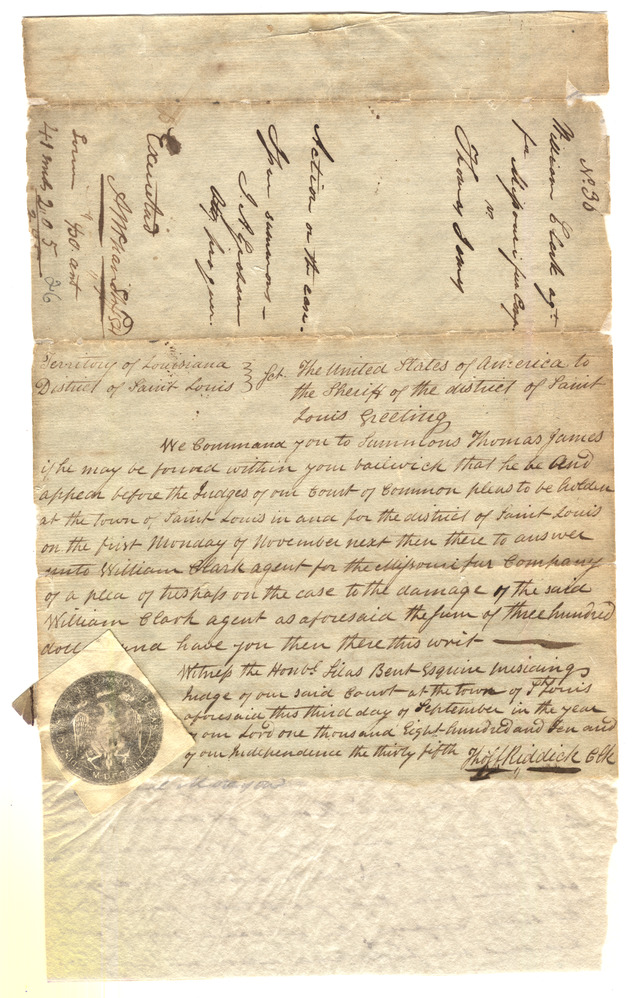 No 30
William Clark agt
for Missouri fur Comp.
v.
Thomas James
Action on the case.
Issue summons—
Executed
Territory of Louisiana
District of Saint Louis
Sct. The United States of America to
the Sheriff of the district of Saint
Louis Greeting
We Command you to Summons Thomas James
if he may be found within your bailwick that he be And
appear before the Judges of our Court of Common pleas to be holden
at the town of Saint Louis in and for the district of Saint Louis
on the first Monday of November next then there to answer
unto William Clark agent for the Missouri fur Company
of a plea of trespass on the case to the damage of the said
William Clark agent as aforesaid the sum of three hundred
and have you then there this writ
Witness the Honbl. Silas Bent Esquire presiding
Judge of our said Court at the town of St Louis
aforesaid this third day of September in the year
of our Lord one thousand Eight hundred and Ten and
of our Independence the thirty fifth
Thos. F. Riddick Clk